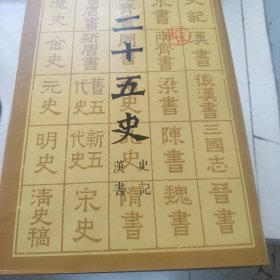 二十五史
史記
漢書
史記
漢書
後漢書
三國志
晉書
南齊書
梁書
陳書
魏書
隋書
唐書
新唐書
舊五代史
新五代史
宋史
遼史
金史
元史
明史
清史稿